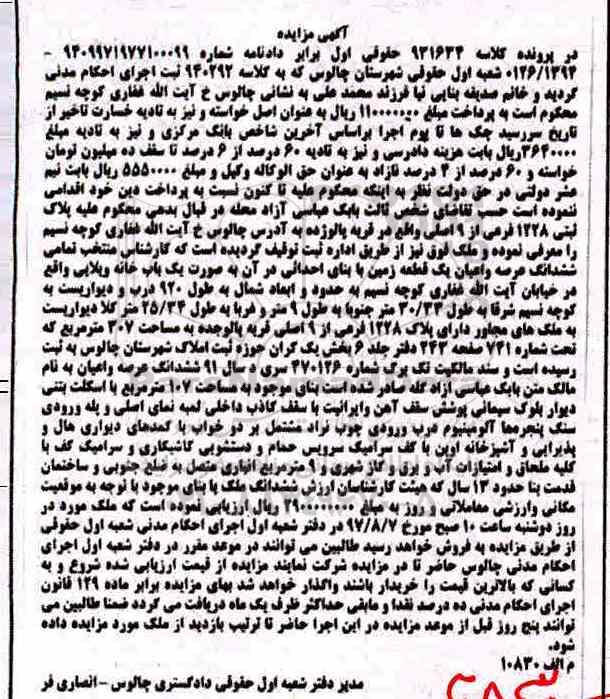 آگهی مزایده
در پرونده کلاسه ۹۳۱۶۳۴ حقوقی اول برابر دادنامه شماره ۹۴۰۹۹۷۱۹۷۷۱۰۰۰۹۹ -
۰۱۲۶/۱۳۹۴ شعبه اول حقوقی شهرستان چالوس که به کلاسه ۹۴۰۲۹۲ ثبت اجرای احکام مدنی
گردید و خانم صدیقه بنایی نیا فرزند محمد علی به نشانی چالوس خ آیت الله غفاری کوچه نسیم
محکوم است به پرداخت مبلغ ۱۱۰۰۰۰۰۰۰ ریال به عنوان اصل خواسته و نیز به تادیه خسارت تاخیر از
تاریخ سررسید چک ها تا یوم اجرا براساس آخرین شاخص بانک مرکزی و نیز به تادیه مبلغ
۳۶۴۰۰۰۰ریال بابت هزینه دادرسی و نیز به تادیه ۶۰ درصد از ۶ درصد تا سقف ده میلیون تومان
خواسته و ۶۰ درصد از ۴ درصد مازاد به عنوان حق الوکاله وکیل و مبلغ ۵۵۵۰۰۰۰ ریال بابت نیم
عشر دولتی در حق دولت نظر به اینکه محکوم علیه تا کنون نسبت به پرداخت دین خود اقدامی
ننموده است حسب تقاضای شخص ثالث بابک عباسی آزاد محله در قبال بدهی محکوم علیه پلاک
ثبتی ۱۲۲۸ فرعی از ۹ اصلی واقع در قریه پالوژده به آدرس چالوس خ آیت الله غفاری کوچه نسیم
را معرفی نموده و ملک فوق نیز از طریق اداره ثبت توقیف گردیده است که کارشناس منتخب تمامی
ششدانگ عرصه واعیان یک قطعه زمین با بنای احداثی در آن به صورت یک باب خانه ویلایی واقع
در خیابان آیت الله غفاری کوچه نسیم به حدود و ابعاد شمال به طول ۹۲۰ درب و دیواریست به
کوچه نسیم شرقا به طول ۳۰/۳۳ متر جنوبا به طول ۹ متر و غربا به طول ۲۵/۳۴ متر کلا دیواریست
به ملک های مجاور دارای پلاک ۱۲۲۸ فرعی از ۹ اصلی قریه پالوجده به مساحت ۳۰۷ مترمربع که
تحت شماره ۷۴۱ صفحه ۲۴۳ دفتر جلد ۶ بخش یک کران حوزه ثبت املاک شهرستان چالوس به ثبت
رسیده است و سند مالکیت تک برگ شماره ۴۷۰۱۲۶ سری د سال ۹۱ ششدانگ عرصه واعیان به نام
مالک متن بابک عباسی آزاد کله صادر شده است بنای موجود به مساحت ۱۰۷ مترمربع با اسکلت بتنی
دیوار بلوک سیمانی پوشش سقف آهن وایرانیت با سقف کاذب داخلی لمبه نمای اصلی و پله ورودی
سنگ پنجرهها آلومینیوم درب ورودی چوب نراد مشتمل بر دو خواب با کمدهای دیواری هال و
پذیرایی و آشپزخانه اوپن با کف سرامیک سرویس حمام و دستشویی کاشیکاری و سرامیک کف با
کلیه ملحقات و امتیازات آب و برق و گاز شهری و ۹ مترمربع انباری متصل به ضلع جنوبی و ساختمان
قدمت بنا حدود ۱۳ سال که هیئت کارشناسان ارزش ششدانگ ملک با بنای موجود با توجه به موقعیت
مکانی وارزشی معاملاتی و روز به مبلغ ۳۹۰۰۰۰۰۰۰۰ ریال ارزیابی نموده است که ملک مورد در
روز دوشنبه ساعت ۱۰ صبح مورخ ۹۷/۸/۷ در دفتر شعبه اول اجرای احکام مدنی شعبه اول حقوقی
از طریق مزایده به فروش خواهد رسید طالبین می توانند در موعد مقرر در دفتر شعبه اول اجرای
احکام مدنی چالوس حاضر تا در مزایده شرکت نمایند مزایده از قیمت ارزیابی شده شروع و به
کسانی که بالاترین قیمت را خریدار باشند واگذار خواهد شد بهای مزایده برابر ماده ۱۲۹ قانون
اجرای احکام مدنی ده درصد نقدا و مابقی حداکثر ظرف یک ماه دریافت می گردد ضمنا طالبین می
توانند پنج روز قبل از موعد مزایده در این اجرا حاضر تا ترتیب بازدید از ملک مورد مزایده داده
شود.
م الف ۱۰۸۳۰
مدیر دفتر شعبه اول حقوقی دادگستری چالوس - انصاری فر